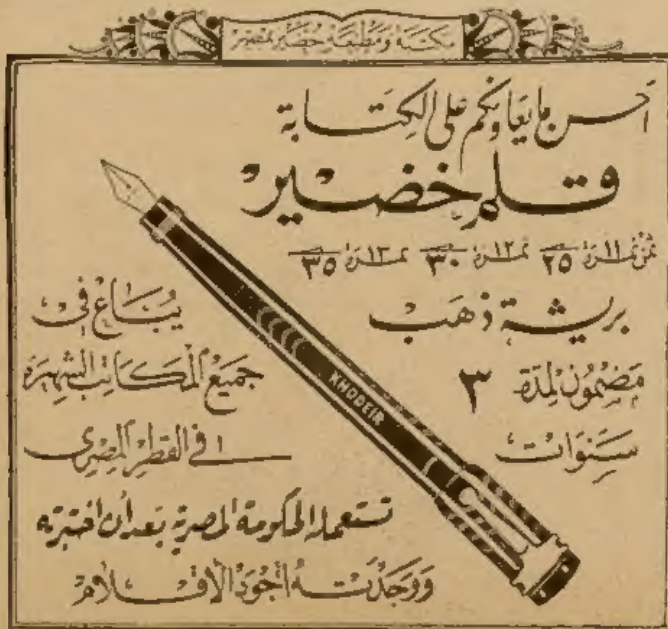 مكتبة ومطبعة خضير بمصر
أحسن ما يعاونكم على الكتابة
قلم خضير
ثمن نمرة ١١ ٢٥ نمرة ١٢ ٣٠ نمرة ١٣ ٣٥
بريشة ذهب
مضمون لمدة ٣
سنوات
يباع فى
جميع المكاتب الشهيرة
فى القطر المصرى
KHODEIR
تستعمله الحكومة المصرية بعد أن اختبرته
ووجدته أجود الأقلام